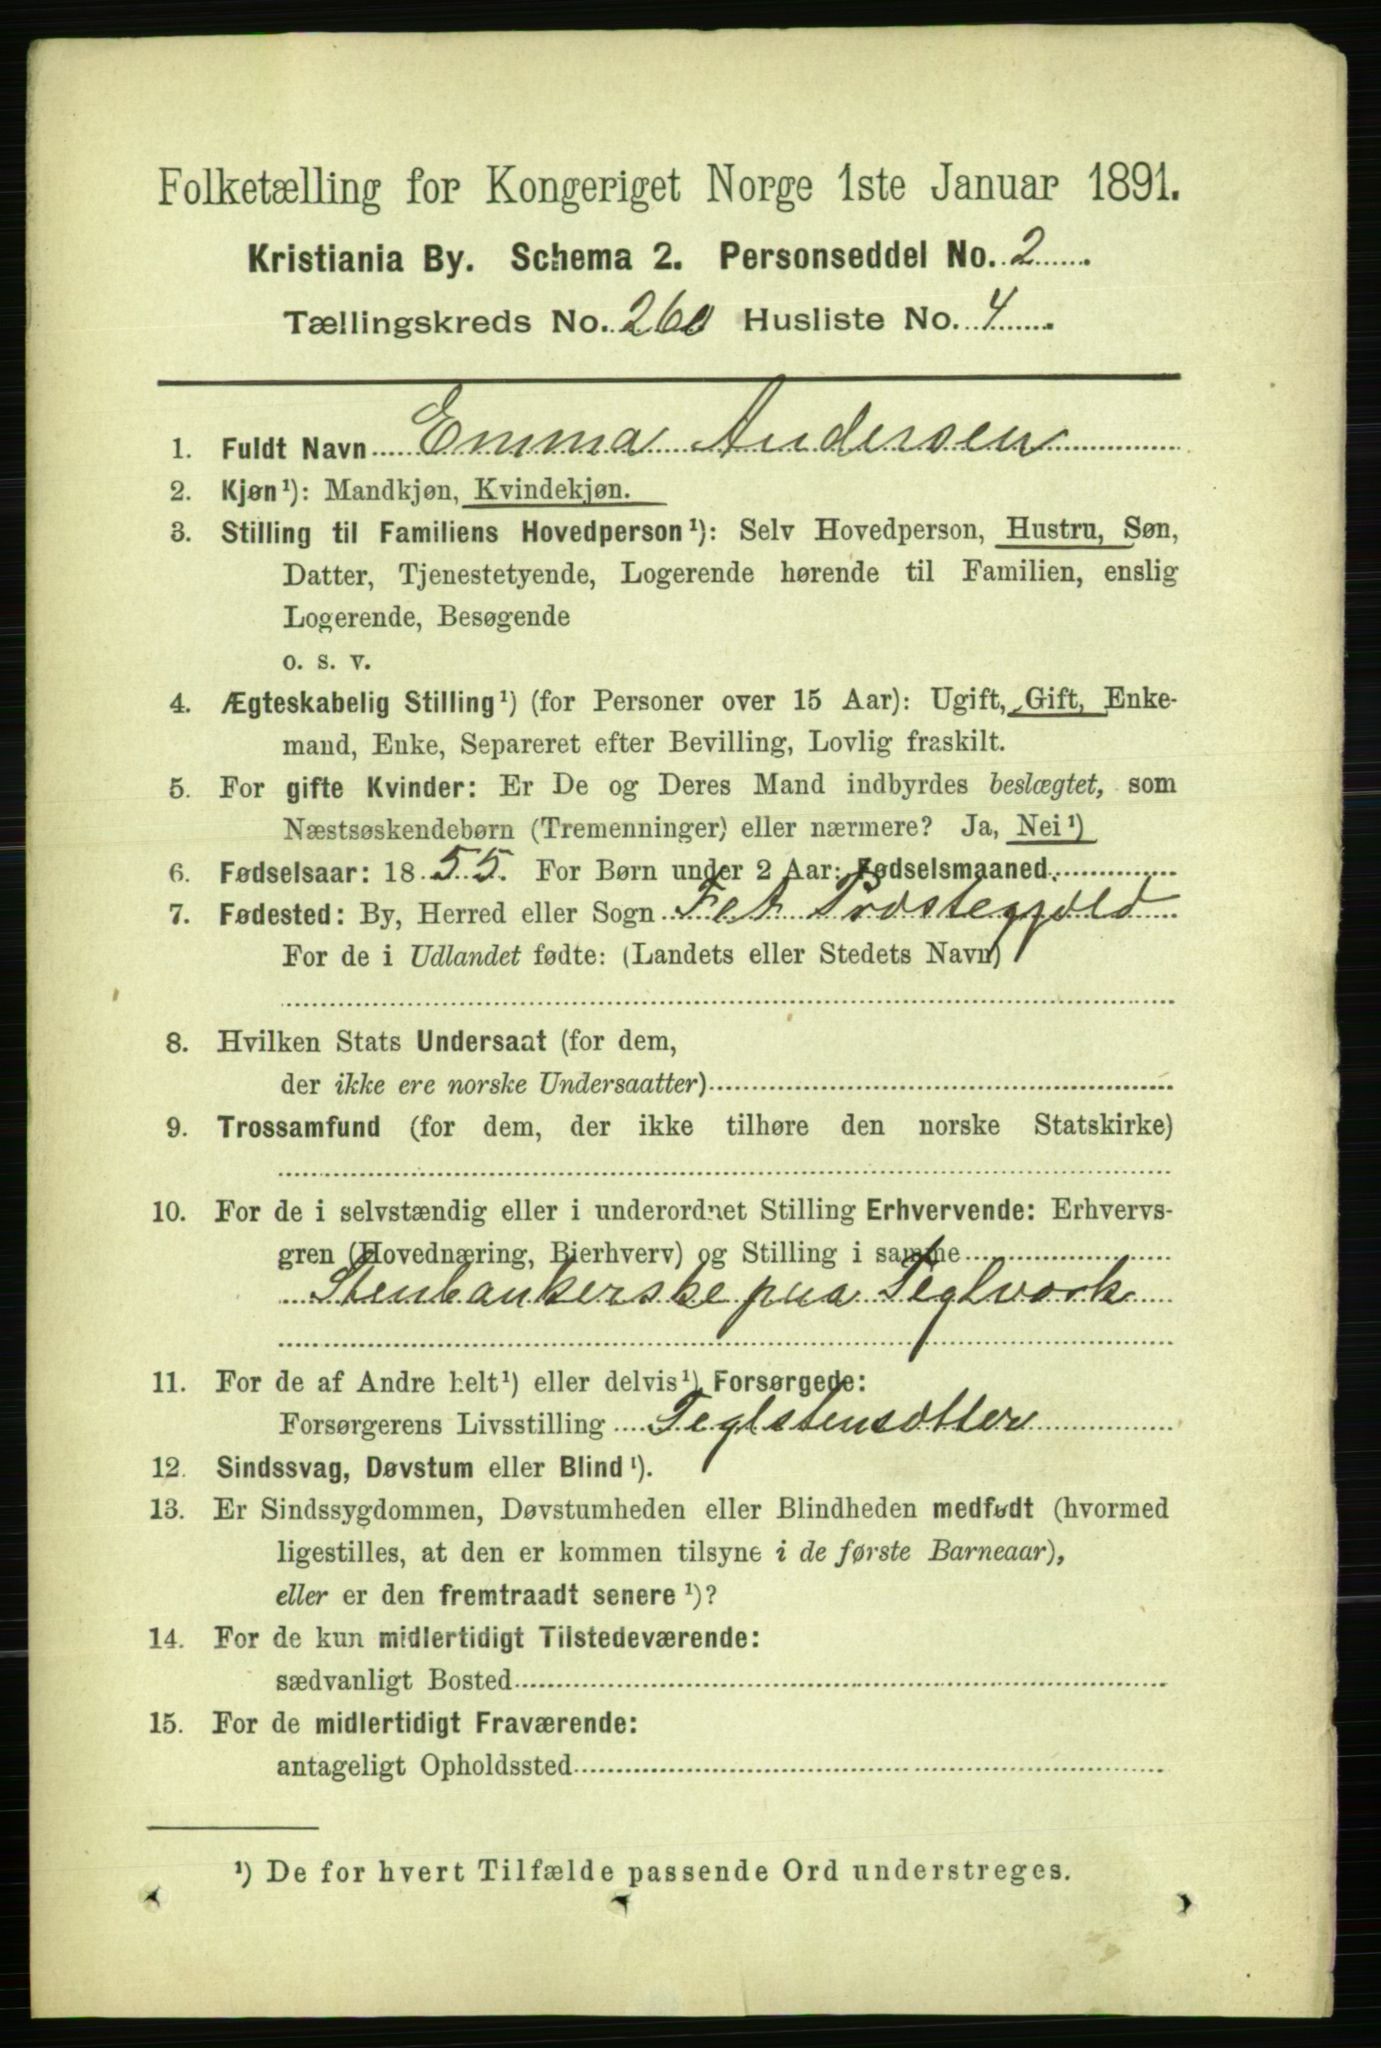 Folketælling for Kongeriget Norge 1ste Januar 1891.
Kristiania By. Schema 2. Personseddel No. 2
Tællingskreds No. 260 Husliste No. 4
1. Fuldt Navn Emma Andersen
2. Kjøn¹): Mandkjøn, Kvindekjøn.
3. Stilling til Familiens Hovedperson¹): Selv Hovedperson, Hustru, Søn,
Datter, Tjenestetyende, Logerende hørende til Familien, enslig
Logerende, Besøgende
o. s. v.
4. Ægteskabelig Stilling¹) (for Personer over 15 Aar): Ugift, Gift, Enke-
mand, Enke, Separeret efter Bevilling, Lovlig fraskilt.
5. For gifte Kvinder: Er De og Deres Mand indbyrdes beslægtet, som
Næstsøskendebørn (Tremenninger) eller nærmere? Ja, Nei¹)
6. Fødselsaar: 1855. For Børn under 2 Aar: Fødselsmaaned
7. Fødested: By, Herred eller Sogn Fet Præstegjeld
For de i Udlandet fødte: (Landets eller Stedets Navn)
8. Hvilken Stats Undersaat (for dem,
der ikke ere norske Undersaatter)
9. Trossamfund (for dem, der ikke tilhøre den norske Statskirke)
10. For de i selvstændig eller i underordnet Stilling Erhvervende: Erhvervs-
gren (Hovednæring, Bierhverv) og Stilling i samme
Stenbankerske paa Teglværk
11. For de af Andre helt¹) eller delvis¹) Forsørgede:
Forsørgerens Livsstilling Teglstensætter
12. Sindssvag, Døvstum eller Blind¹).
13. Er Sindssygdommen, Døvstumheden eller Blindheden medfødt (hvormed
ligestilles, at den er kommen tilsyne i de første Barneaar),
eller er den fremtraadt senere¹)?
14. For de kun midlertidigt Tilstedeværende:
sædvanligt Bosted
15. For de midlertidigt Fraværende:
antageligt Opholdssted
¹) De for hvert Tilfælde passende Ord understreges.